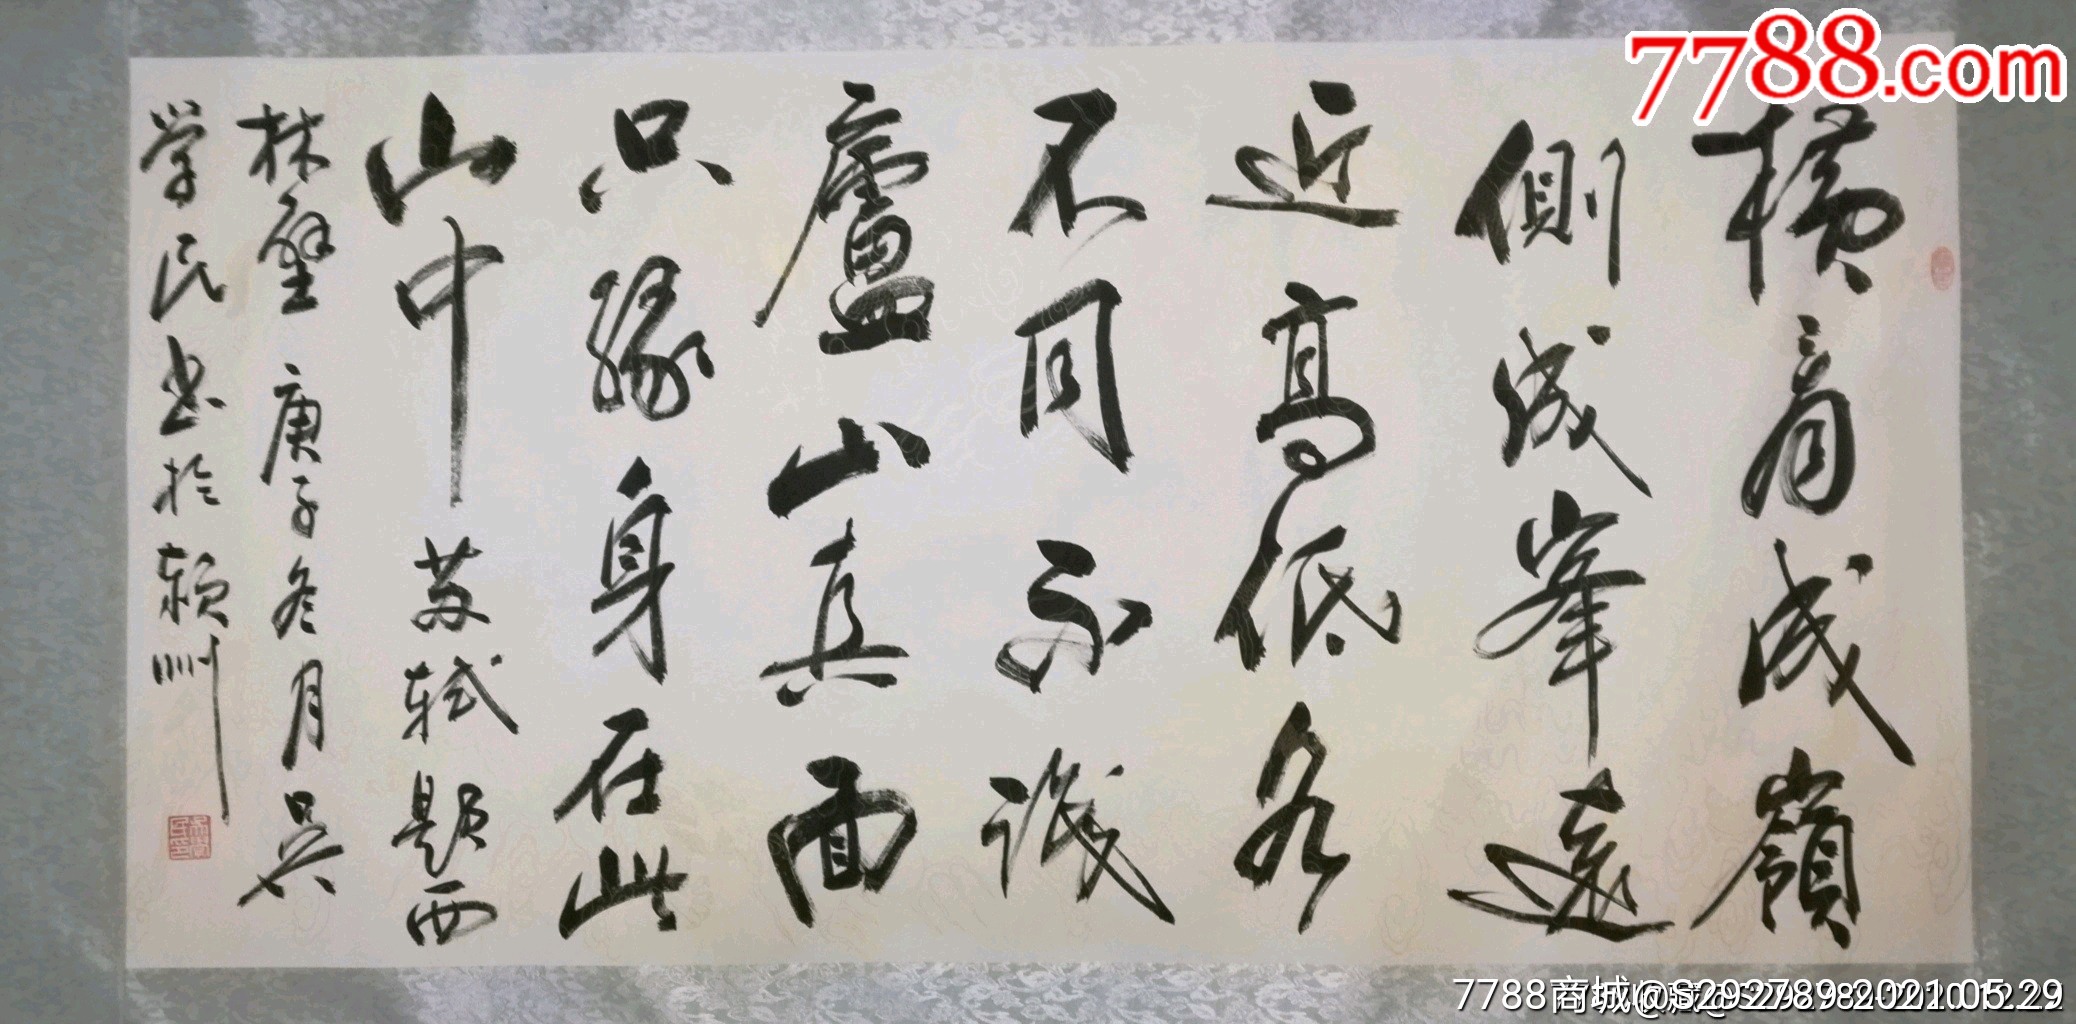 7788.com
橫看成嶺
側成峯遠
近高低各
不同不識
廬山真面
只緣身在此
山中 苏軾題西
林壁 庚子冬月吴
学民书於颍州
7788商城@S292789 2021.05.29